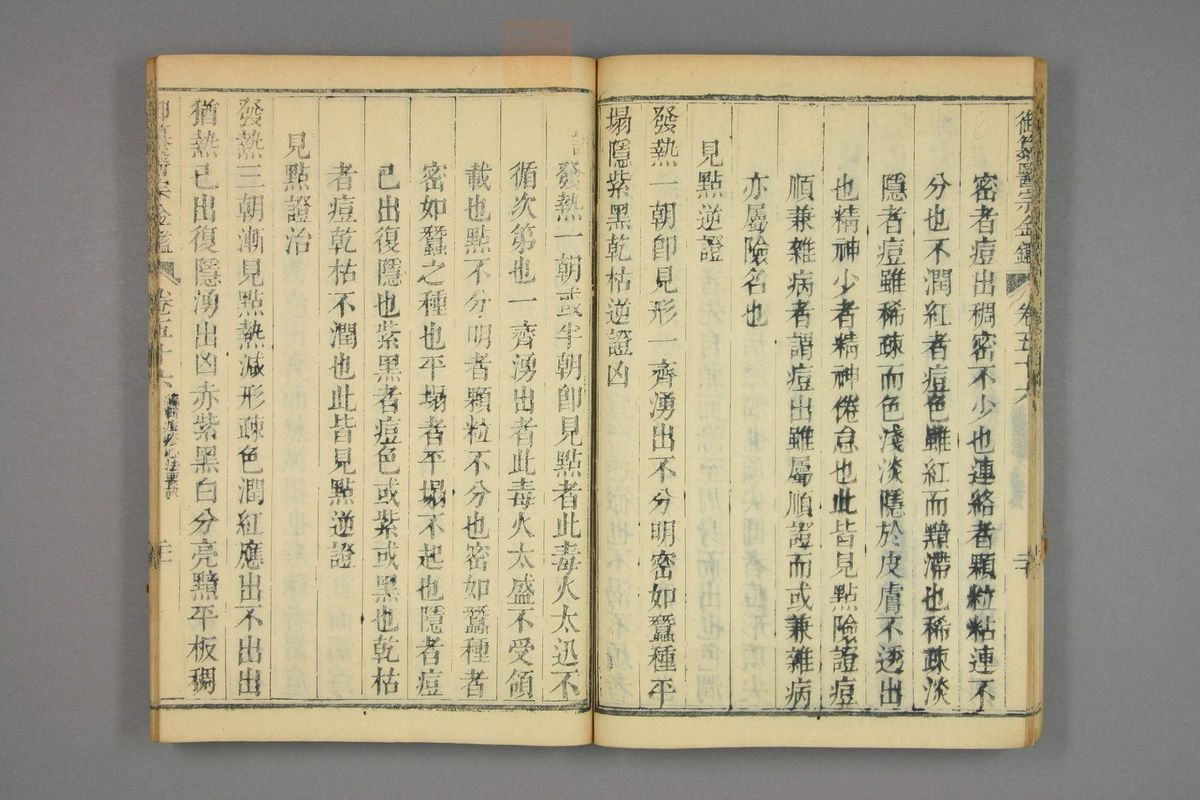 御纂醫宗金鑑 卷五十六
密者痘出稠密不少也連絡者顆粒粘連不
分也不潤紅者痘色雖紅而黯滯也稀疎淡
隱者痘雖稀疎而色淺淡隱於皮膚不透出
也精神少者精神倦怠也此皆見點險證痘
順兼雜病者謂痘出雖屬順證而或兼雜病
亦屬險名也
見點逆證
發熱一朝卽見形一齊湧出不分明密如蠶種平
塌隱紫黑乾枯逆證凶
發熱一朝或半朝卽見點者此毒火太迅不
循次第也一齊湧出者此毒火太盛不受領
載也點不分明者顆粒不分也密如蠶種者
密如蠶之種也平塌者平塌不起也隱者痘
已出復隱也紫黑者痘色或紫或黑也乾枯
者痘乾枯不潤也此皆見點逆證
見點證治
發熱三朝漸見點熱減形疎色潤紅應出不出出
猶熱已出復隱湧出凶赤紫黑白分亮黯平板稠
卷五十六